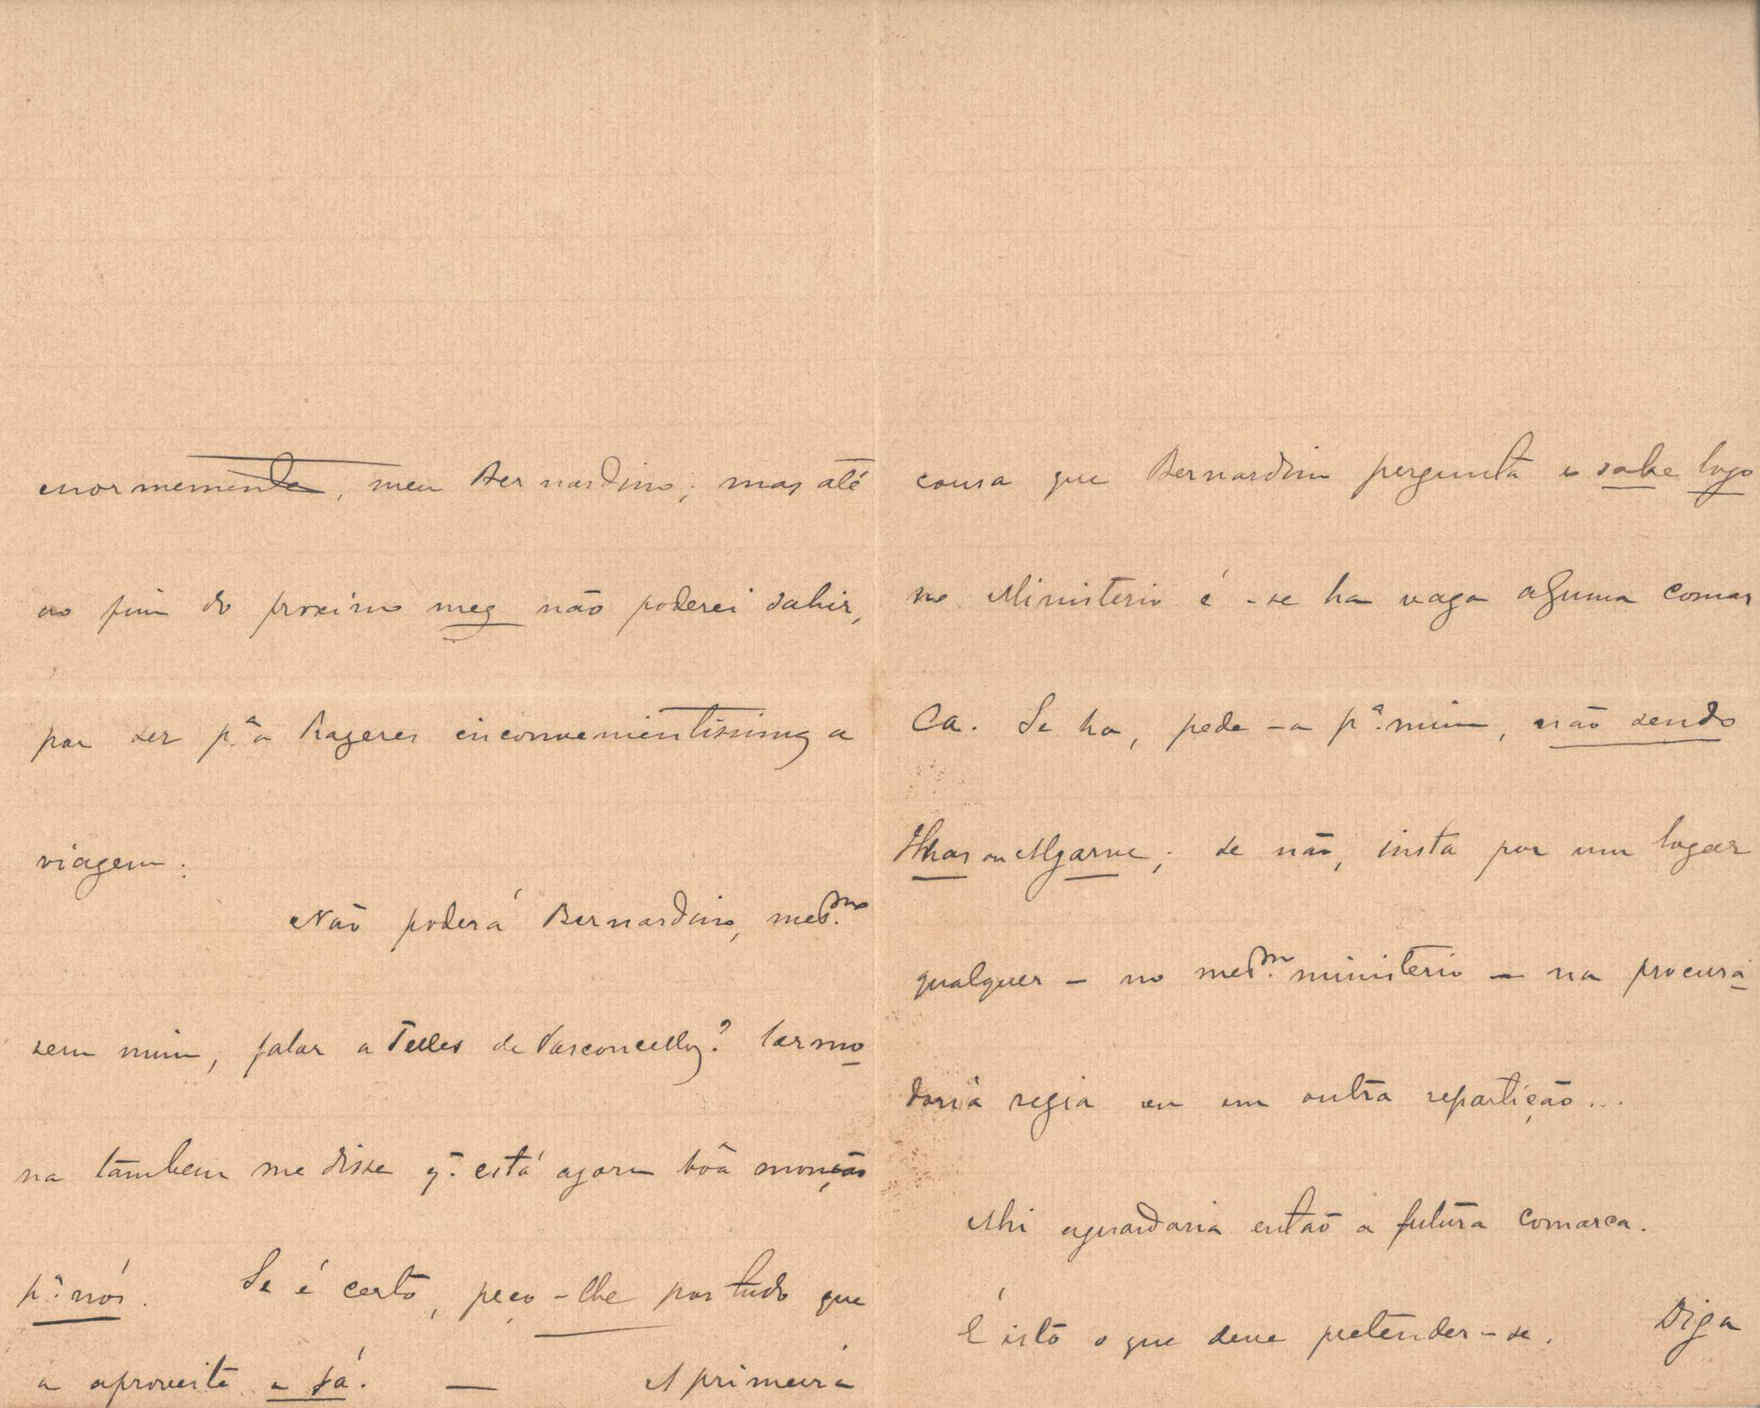 enormemente, meu Bernardino; mas até
ao fim do proximo mez não poderei sahir,
por ser pª a Razeres inconvenientissima a
viagem.
Não poderá Bernardino, mesmo
sem mim, falar a Telles de Vasconcellos? Carmo
na tambem me disse q. está agora bôa monção
pª nós. Se é certo, peço-lhe por tudo que
a aproveite e já. — A primeira
cousa que Bernardino pergunta e sabe logo
no Ministerio é - se ha vaga alguma comar
ca. Se ha, pede-a pª mim, não sendo
Ilhas ou Algarve; se não, insta por um logar
qualquer - no mesmo ministerio - na procura
doria regia ou em outra repartição...
Ahi aguardaria então a futura comarca.
É isto o que deve pretender-se. Diga